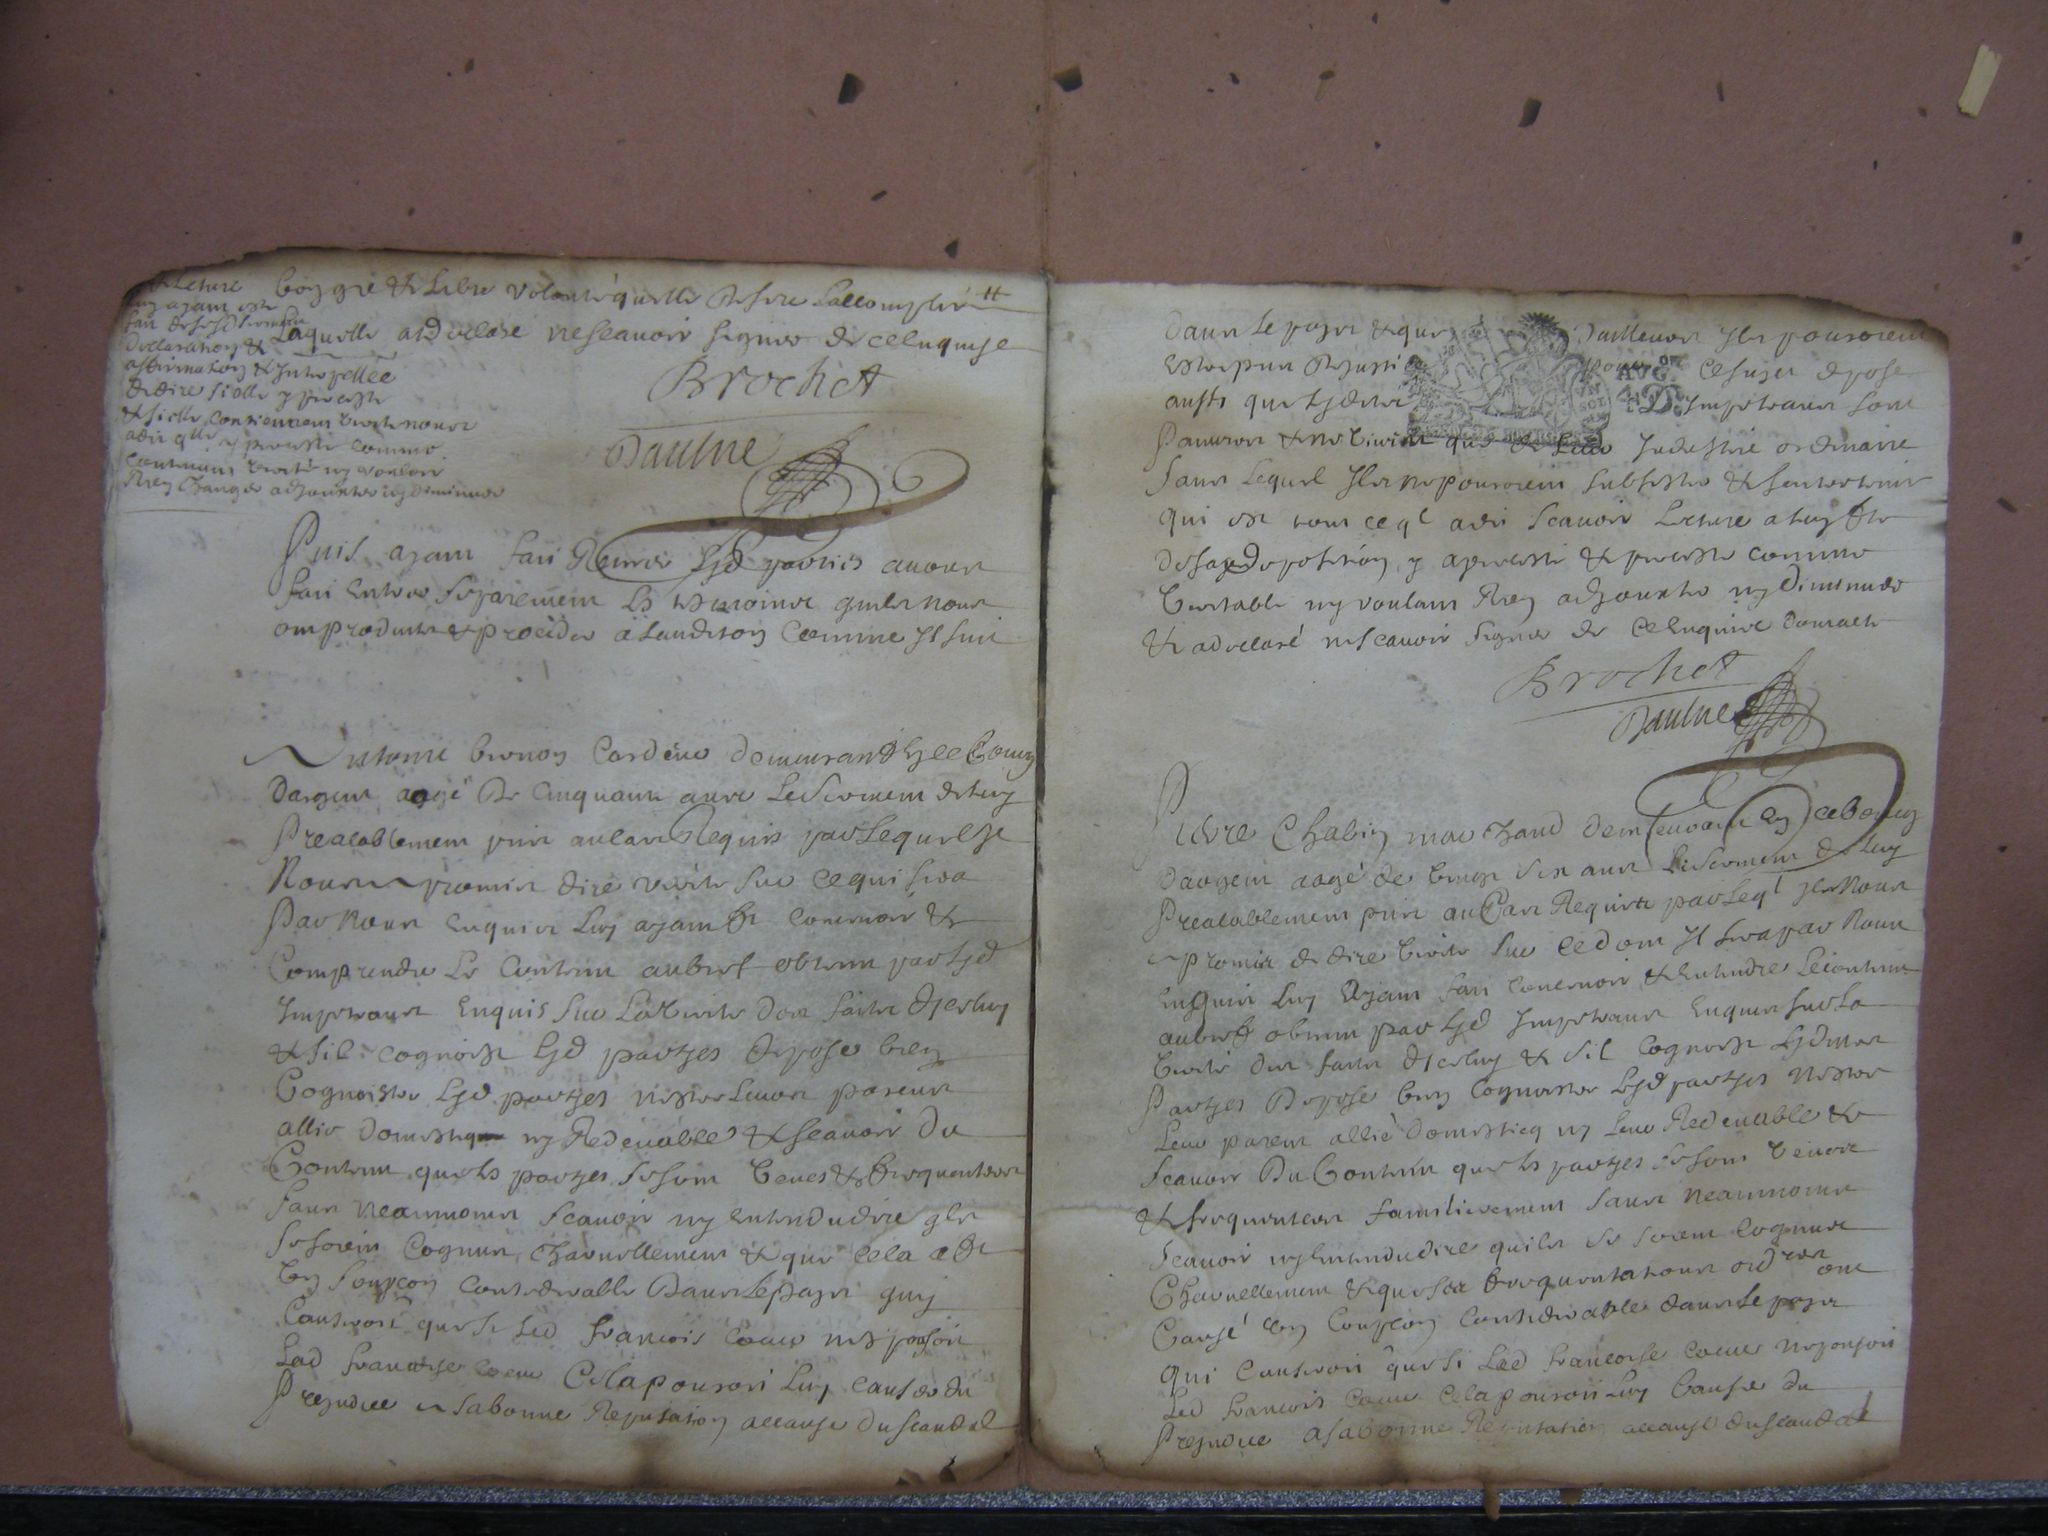 lecture
luy ayant esté
fait de sesd
declaration &
affirmation & Interpellée
de dire si elle y persiste
& si elle contiennent verité nous a
a dit qlle y persiste comme
contenant verité ny vouloir
Rien changer adjouxter ny diminuer
bon gré & Libre volonté quelle desire Laccomplir #
Laquelle a declaré ne scauoir signer de ce Enquise
Brochet
Daulne
Puis ayant fait Retirer Lsd parties auons
fait Entrer separement Les tesmoins quils nous
ont produits & procéder a Laudition Comme Il suit
Antoine Cardeur demeurant En ce Bourg
Dargent aagé De Cinquante ans Le serment de luy
Prealablement pris au cas Requis par Lequel Il
Nous a promis dire verité sur ce qui sera
Par Nous Enquis Luy ayant fait concevoir &
Comprendre Le Contenu au bref obtenu par Lsd
Impetrans Enquis sur La verité des faits dicelluy
& sil cognoist Lsd parties depose bien
Cognoistre Lsd parties nestre Leurs parens
allié domestique ny Redeuable & scauoir du
Contenu que Les parties se sont veues & frequentees
sans neanmoins scauoir ny entendu dire qls
se soient cognus charnellement & que cela a fait
Un soupçon considerable Dans Le pays qui
Causeroit que si Led francois coeur nespousoit
Lad francoise coeur Cela pouroit Luy causer du
Prejudice a sa bonne Reputation a cause du scandal
dans Le pays & que Dailleurs Ils pouroient
Estre puis
ausfs que Lsd Impetrans sont
Pauures & ne viuent que de Leur Industrie ordinaire
sans Lequel Ils ne pouroient subsister & sentretenir
qui est tout ce ql a dit scauoir Lecture a luy fte
de sa deposition y a persisté & persiste comme
veritable ny voulant Rien adjouxter ny diminuer
& a declaré ne scauoir signer de ce Enquis
Brochet
Daulne
Pierre Chabin marchand demeurant En ce Bourg
Dargent aagé de vingt six ans Le serment de luy
Prealablement pris au Cas Requis & par Leql Il Nous
a promis de dire verité sur ce dont Il sera par Nous
Enquis Luy Ayant fait concevoir & Entendre Le contenu
au bref obtenu par Lsd Impetrans Enquis sur La
verité des faits dicelluy & sil cognoist Lsd
Parties Depose bien cognoistre Lsd parties nestre
Leur parent allié domesticq ny Leur Redeuable &
scauoir Du Contenu que Les parties se sont
& frequentees familierement sans neanmoins
scauoir ny Entendu dire quils se soient cognus
Charnellement & que Les frequentations ont
Causé Un soupçon considerable dans Le pays
qui Causeroit que si Lad francoise coeur nespousoit
Led francois coeur Cela pouroit Luy Causer du
Prejudice a sa bonne Reputation a cause du scandal